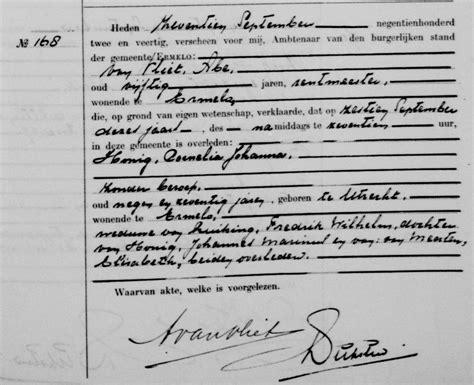 Heden zeventien September negentienhonderd
№ 168
twee en veertig, verscheen voor mij, Ambtenaar van den burgerlijken stand
der gemeente/ERMELO:
van Vliet, Abe,
oud vijftig jaren, rentmeester,
wonende te Ermelo,
die, op grond van eigen wetenschap, verklaarde, dat op zestien September
dezes jaars, des namiddags te zeventien uur,
in deze gemeente is overleden:
Honig, Cornelia Johanna,
zonder beroep,
oud negen en zeventig jaren, geboren te Utrecht,
wonende te Ermelo,
weduwe van Fredrik Wilhelm, dochter
van Honig, Johannes Marinus en van: van Meerten,
Elisabeth, beiden overleden.
Waarvan akte, welke is voorgelezen.
Avanvliet